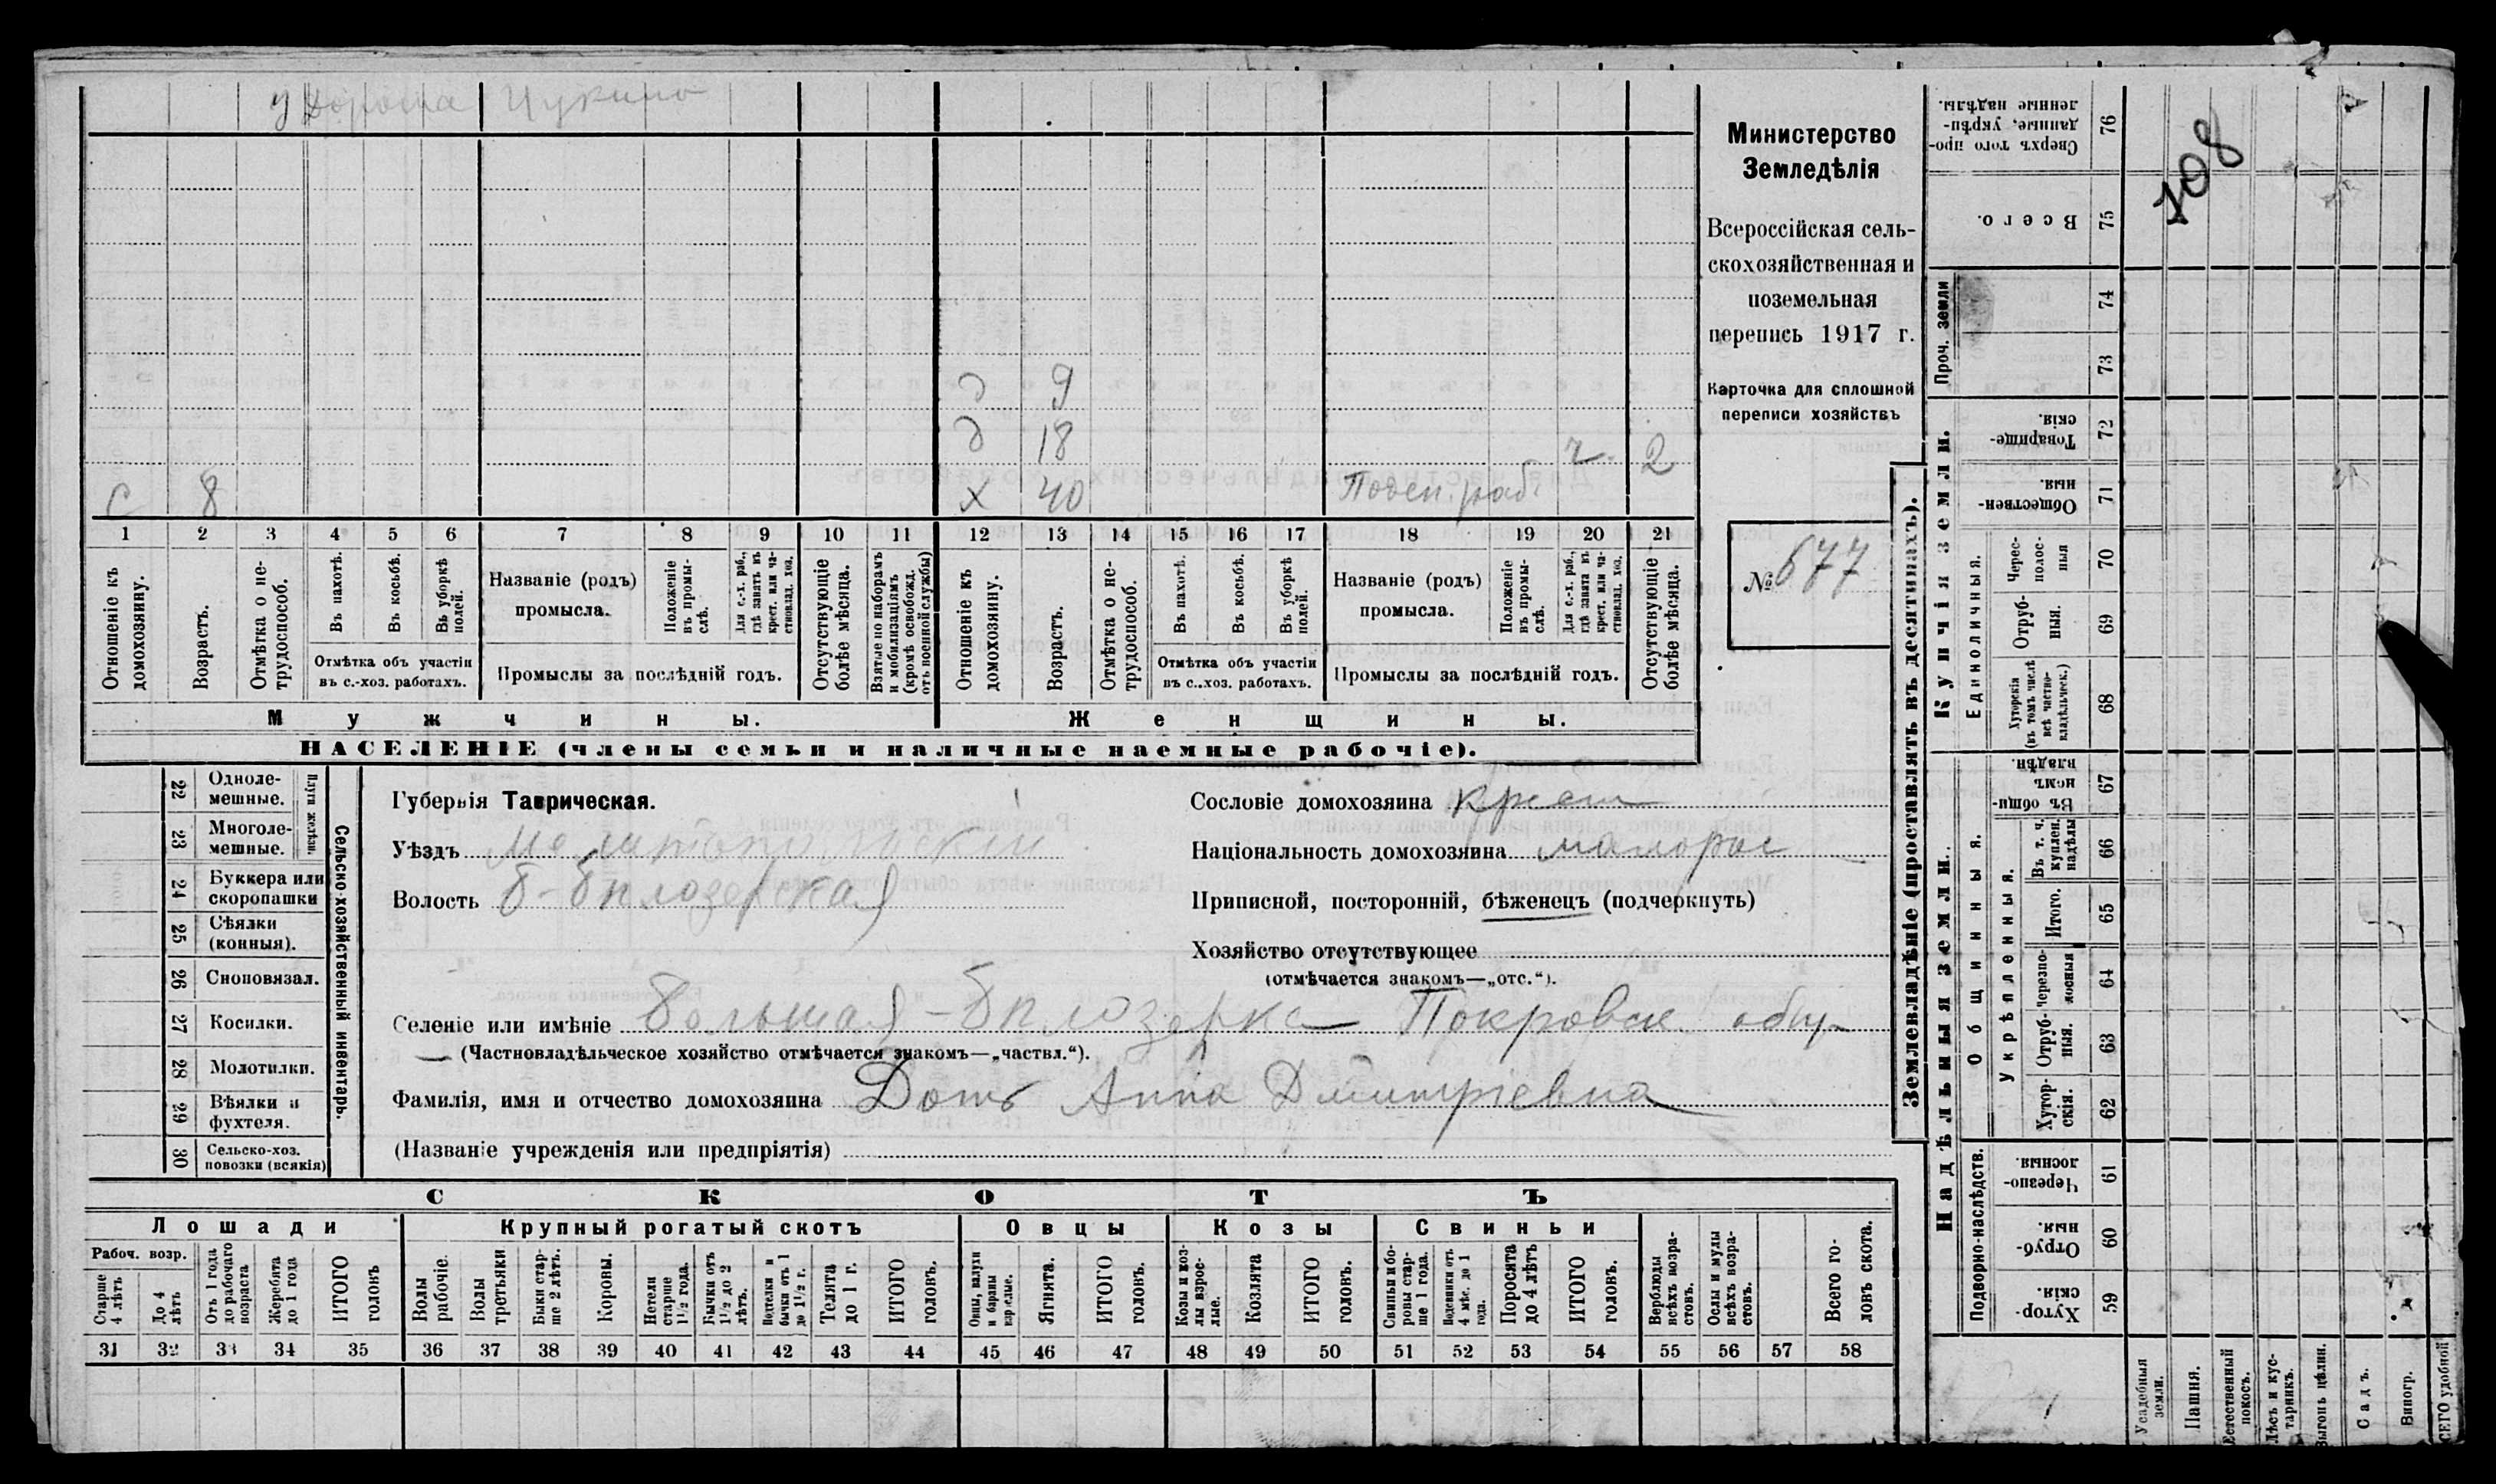 у Дороша Чукина
Министерство
Земледѣлія
Всероссійская сель-
скохозяйственная и
поземельная
перепись 1917 г.
Карточка для сплошной
переписи хозяйствъ
№ 677
108
д 9
д 18
ч. 2
с 8
х 40 Поден. раб.
1 2 3 4 5 6 7 8 9 10 11 12 13 14 15 16 17 18 19 20 21
Отношеніе къ домохозяину.
Возрастъ.
Отмѣтка о не-трудоспособ.
Въ пахотѣ.
Въ косьбѣ.
Въ уборкѣ полей.
Отмѣтка объ участіи
въ с.-хоз. работахъ.
Названіе (родъ)
промысла.
Положеніе въ промы-слѣ.
Для с.-х. раб., гдѣ занятъ въ крест. или ча-стновлад. хоз.
Промыслы за послѣдній годъ.
Отсутствующіе болѣе мѣсяца.
Взятые по наборамъ и мобилизаціямъ (кромѣ освобожд. отъ военной службы)
Отношеніе къ домохозяину.
Возрастъ.
Отмѣтка о не-трудоспособ.
Въ пахотѣ.
Въ косьбѣ.
Въ уборкѣ полей.
Отмѣтка объ участіи
въ с..хоз. работахъ.
Названіе (родъ)
промысла.
Положеніе въ промы-слѣ.
Для с.-х. раб., гдѣ занятъ въ крест. или ча-стновлад. хоз.
Промыслы за послѣдній годъ.
Отсутствующіе болѣе мѣсяца.
Мужчины.
Женщины.
НАСЕЛЕНІЕ (члены семьи и наличные наемные рабочіе).
22 Одноле-мешные.
23 Многоле-мешные.
Плуги желѣзн.
24 Буккера или скоропашки
25 Сѣялки (конныя).
26 Сноповязал.
27 Косилки.
28 Молотилки.
29 Вѣялки и фухтеля.
30 Сельско-хоз. повозки (всякія)
Сельско-хозяйственный инвентарь.
Губернія Таврическая.
Уѣздъ Мелитопольскій
Волость Б-Бѣлозерская
Сословіе домохозяина крест
Національность домохозяина малорос
Приписной, посторонній, бѣженецъ (подчеркнуть)
Хозяйство отсутствующее
(отмѣчается знакомъ—„отс.“).
Селеніе или имѣніе Большая-Бѣлозерка Покровск. общ
(Частновладѣльческое хозяйство отмѣчается знакомъ—„частвл.“).
Фамилія, имя и отчество домохозяина Доть Анна Дмитріевна
(Названіе учрежденія или предпріятія)
СКОТЪ
Лошади
Крупный рогатый скотъ
Овцы
Козы
Свиньи
Рабоч. возр.
Старше 4 лѣтъ
До 4 лѣтъ
Отъ 1 года до рабочаго возраста
Жеребята до 1 года
ИТОГО головъ
Волы рабочіе.
Волы третьяки
Быки стар-ше 2 лѣтъ.
Коровы.
Нетели старше 1 1/2 года.
Бычки отъ 1 1/2 до 2 лѣтъ.
Подтелки и бычки отъ 1 до 1 1/2 г.
Телята до 1 г.
ИТОГО головъ.
Овцы, валухи и бараны взрослые.
Ягнята.
ИТОГО головъ.
Козы и коз-лы взрос-лые.
Козлята
ИТОГО головъ.
Свиньи и бо-ровы стар-ше 1 года.
Подсвинки отъ 4 мѣс. до 1 года.
Поросята до 4 лѣтъ
ИТОГО головъ.
Верблюды всѣхъ возра-стовъ.
Ослы и мулы всѣхъ возра-стовъ.
Всего го-ловъ скота.
31 32 33 34 35 36 37 38 39 40 41 42 43 44 45 46 47 48 49 50 51 52 53 54 55 56 57 58
Землевладѣніе (проставлять въ десятинахъ).
Купчія земли.
Надѣльныя земли.
Сверхъ того про-данные, укрѣп-ленные надѣлы. 76
Всего. 75
Проч. земли 74
73
Товарище-скія 72
Обществен-ныя. 71
Единоличныя.
Черес-полос-ныя 70
Отруб-ныя. 69
Хуторскія (въ томъ числѣ всѣ частно-владѣльческ.) 68
Общинныя.
Въ общин-номъ владѣн. 67
Укрѣпленныя.
Въ т. ч. куплен. надѣлы 66
Итого. 65
Черезпо-лосныя 64
Отруб-ныя. 63
Хутор-скія. 62
Подворно-наслѣдств.
Черезпо-лосныя. 61
Отруб-ныя. 60
Хутор-скія. 59
Усадебныя земли.
Пашня.
Естественный покосъ.
Лѣсъ и кус-тарникъ.
Выгонъ цѣлин.
Садъ.
Виногр.
СЕГО удобной